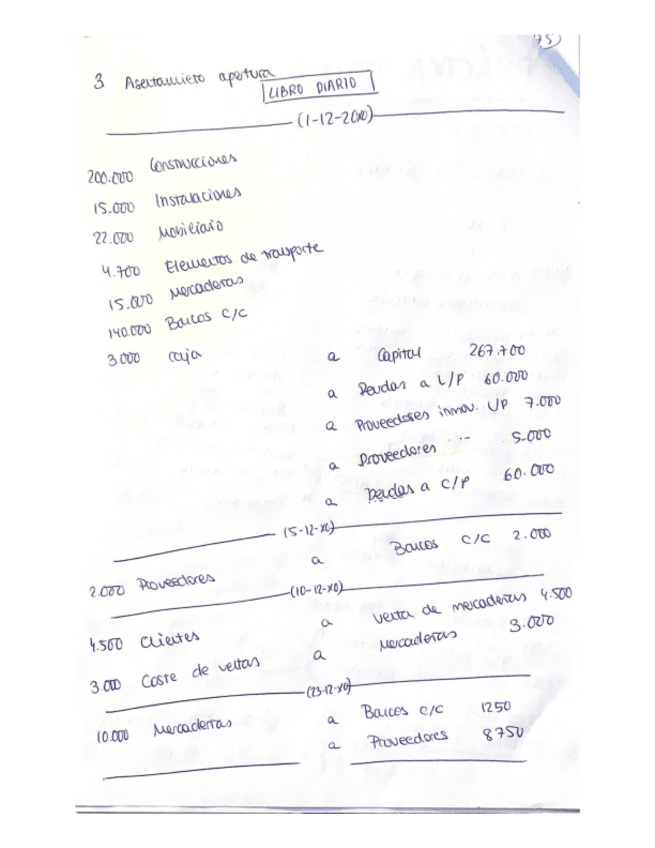 75
3 Asentamiento apertura
LIBRO DIARIO
(1-12-20X0)
200.000 Construcciones
15.000 Instalaciones
22.000 Mobiliario
4.700 Elementos de transporte
15.000 Mercaderías
140.000 Bancos c/c
3.000 caja a Capital 267.700
a Deudas a L/P 60.000
a Proveedores inmov. L/P 7.000
a Proveedores ... 5.000
a Deudas a C/P 60.000
(5-12-X0)
2.000 Proveedores a Bancos c/c 2.000
(10-12-X0)
4.500 Clientes a Venta de mercaderías 4.500
3.000 Coste de ventas a Mercaderías 3.000
(23-12-X0)
10.000 Mercaderías a Bancos c/c 1250
a Proveedores 8750